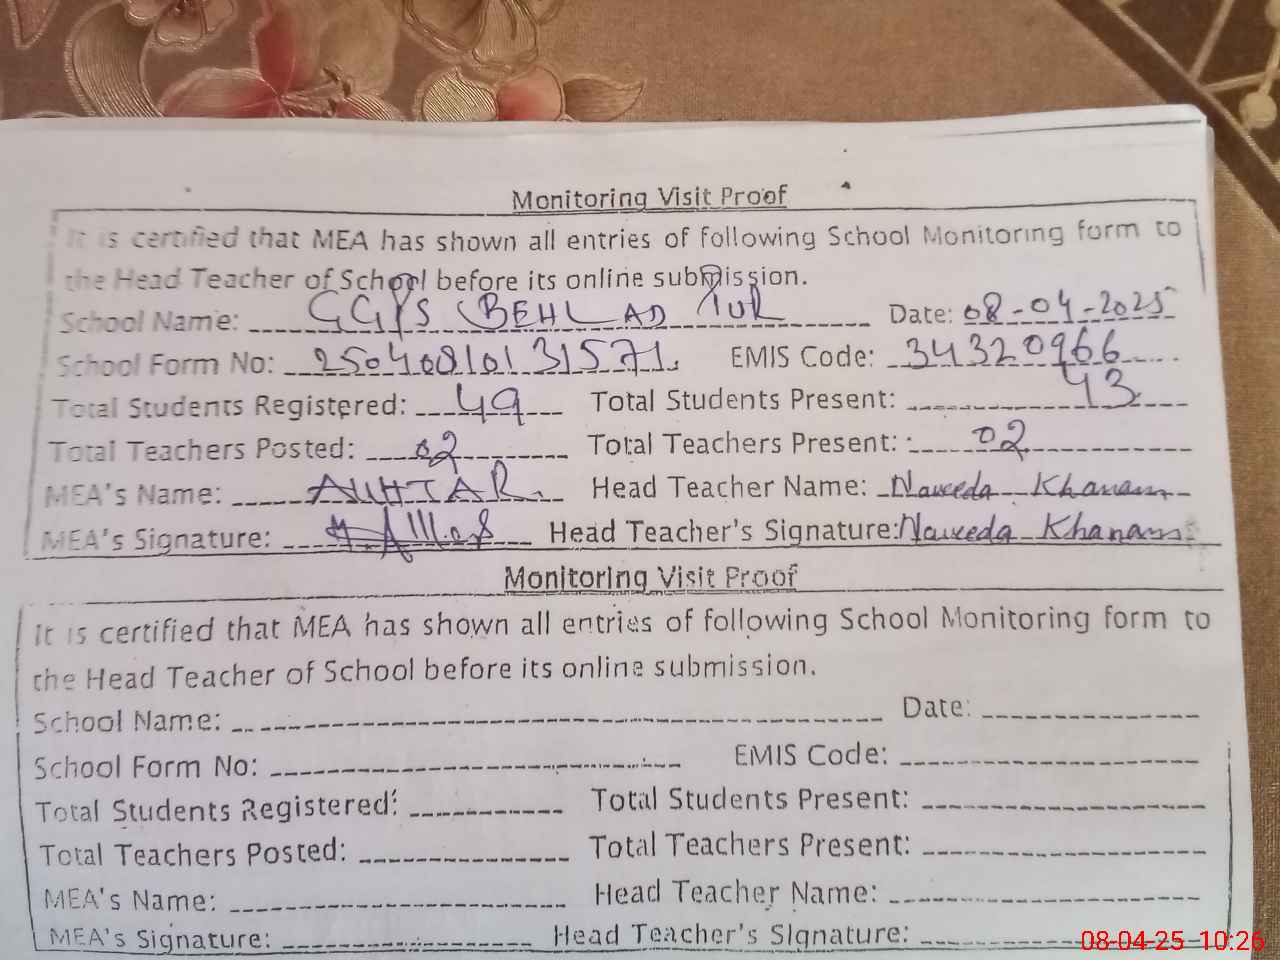 Monitoring Visit Proof
It is certified that MEA has shown all entries of following School Monitoring form to
the Head Teacher of School before its online submission.
School Name: GGPS BEHLAD PUR Date: 08-04-2025
School Form No: 25040810131571 EMIS Code: 34320966
Total Students Registered: 49 Total Students Present: 43
Total Teachers Posted: 02 Total Teachers Present: 02
MEA's Name: Head Teacher Name: Naveeda Khanam
MEA's Signature: Head Teacher's Signature: Naveeda Khanam
Monitoring Visit Proof
It is certified that MEA has shown all entries of following School Monitoring form to
the Head Teacher of School before its online submission.
School Name: Date:
School Form No: EMIS Code:
Total Students Registered: Total Students Present:
Total Teachers Posted: Total Teachers Present:
MEA's Name: Head Teacher Name:
MEA's Signature: Head Teacher's Signature:
08-04-25 10:26